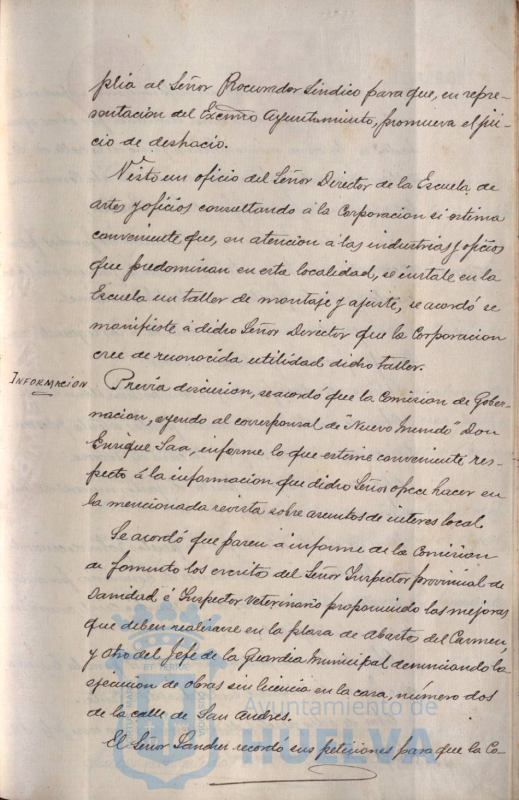 plia al Señor Procurador Sindico para que, en repre-
sentacion del Excmo Ayuntamiento, promueva el jui-
cio de deshacio.
Visto un oficio del Señor Director de la Escuela de
artes y oficios consultando á la Corporacion si estima
conveniente que, en atencion á las industrias y oficios
que predominan en esta localidad, se instale en la
Escuela un taller de montaje y ajuste, se acordó se
manifieste á dicho Señor Director que la Corporacion
cree de reconocida utilidad dicho taller.
INFORMACION
Previa discusion, se acordó que la Comision de Gober-
nacion, oyendo al corresponsal de "Nuevo Mundo" Don
Enrique Saa, informe lo que estime conveniente res-
pecto á la informacion que dicho Señor ofrece hacer en
la mencionada revista sobre asuntos de interes local.
Se acordó que pasen á informe de la Comision
de fomento los escritos del Señor Inspector provincial de
Sanidad é Inspector Veterinario proponiendo las mejoras
que deben realizarse en la plaza de abastos del Carmen,
y otro del Jefe de la Guardia Municipal denunciando la
ejecucion de obras sin licencia en la casa, número dos
de la calle de San Andres.
El Señor Sanchez recordó sus peticiones para que la Co-
Ayuntamiento de
HUELVA